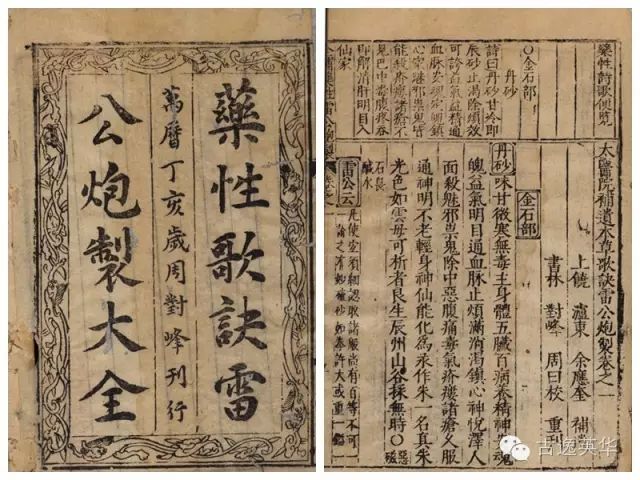 藥性歌訣雷
萬曆丁亥歲周對峰刊行
公炮製大全
藥性詩歌便覽
〇金石部
丹砂
詩曰丹砂甘冷即
辰砂止渴除煩效
可誇益氣益精通
血脉安魂定魄鎮
心
邪祟鬼皆
能殺疥瘻諸瘡不
見巴中毒腹疼吞
即能消肝明目入
仙家
太醫院補遺本草歌訣雷公炮製卷之一
上饒 瀘東 余應奎 補
書林 對峰 周曰校 重刊
金石部
丹砂 味甘微寒無毒主身體五臟百病養精神安魂
魄益氣明目通血脉止煩滿消渴鎮心神悅澤人
面殺魅邪祟鬼除中惡腹痛毒氣疥瘻諸瘡久服
通神明不老輕身神仙能化為汞作朱一名真朱
光色如雲母可析者良生辰州山谷採無時〇惡磁
石畏
鹹水
雷公云 凡使宜須細認取諸般尚有百等不可
一論之有妙硫砂如拳許大或重一鎰
古逸英华